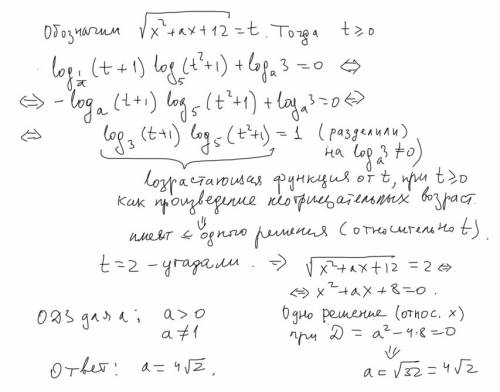 Обозначим √(x²+ax+12) = t. Тогда t ≥ 0
log_{1/a}(t+1) log₅(t²+1) + logₐ3 = 0 ⇔
⇔ -logₐ(t+1) log₅(t²+1) + logₐ3 = 0 ⇔
⇔ log₃(t+1) log₅(t²+1) = 1 (разделили
на logₐ3 ≠ 0)
возрастающая функция от t, при t ≥ 0
как произведение неотрицательных возраст.
⇓
имеет ≤ одного решения (относительно t).
t = 2 – угадали. ⇒ √(x²+ax+12) = 2 ⇔
⇔ x²+ax+8 = 0.
ОДЗ для a: a > 0
a ≠ 1
Одно решение (относ. x)
при D = a² – 4·8 = 0
⇓
a = √32 = 4√2
Ответ: a = 4√2.